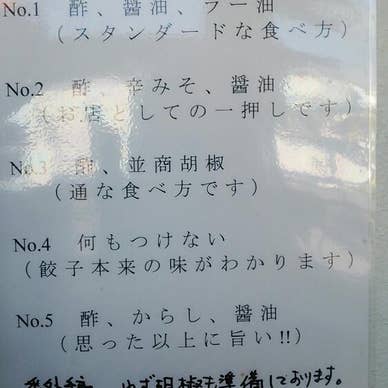 No.1 酢、醤油、ラー油
(スタンダードな食べ方)
No.2 酢、辛みそ、醤油
(お店としての一押しです)
No.3 酢、並商胡椒
(通な食べ方です)
No.4 何もつけない
(餃子本来の味がわかります)
No.5 酢、からし、醤油
(思った以上に旨い!!)
番外編 ゆず胡椒も準備しております。